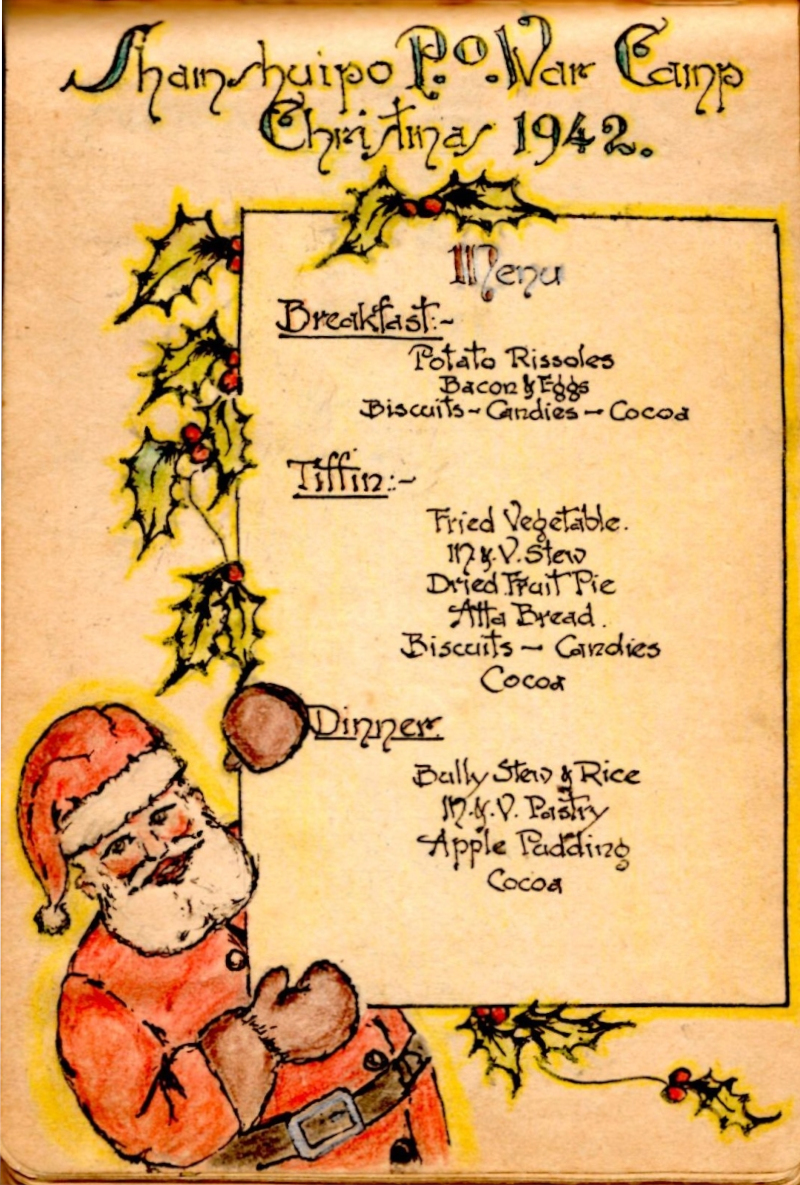 Shamshuipo P.o.War Camp
Christmas 1942.
Menu
Breakfast:~
Potato Rissoles
Bacon & Eggs
Biscuits ~ Candies ~ Cocoa
Tiffin:~
Fried Vegetable.
M.&.V. Stew
Dried Fruit Pie
Atta Bread.
Biscuits ~ Candies
Cocoa
Dinner.
Bully Stew & Rice
M.&.V. Pastry
Apple Pudding
Cocoa